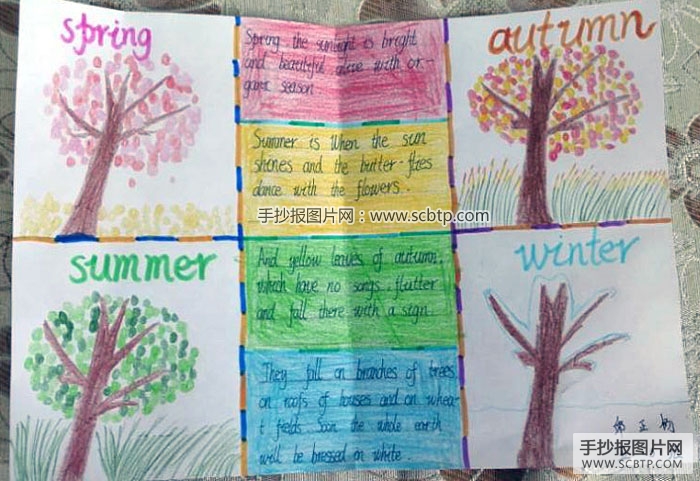 spring
autumn
Spring the sunlight is bright
and beautiful alive with or-
ganic season
Summer is When the sun
shines and the butter-flies
dance with the flowers.
手抄报图片网：www.scbtp.com
summer
winter
And yellow leaves of autumn.
which have no songs. flutter
and fall there with a sign.
They fall on branches of trees
on roofs of houses and on whea-
t fields Soon the whole earth
will be bressed on white.
手抄报图片网
WWW.SCBTP.COM